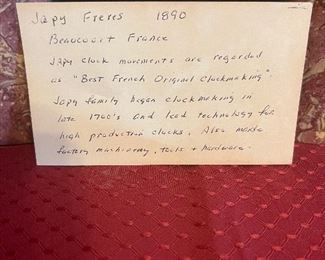 Japy Freres 1890
Beaucourt France
Japy clock movements are regarded
as "Best French Original Clockmaking"
Japy family began clockmaking in
late 1700's and lead technology for
high production clocks. Also made
factory machinery, tools + hardware.